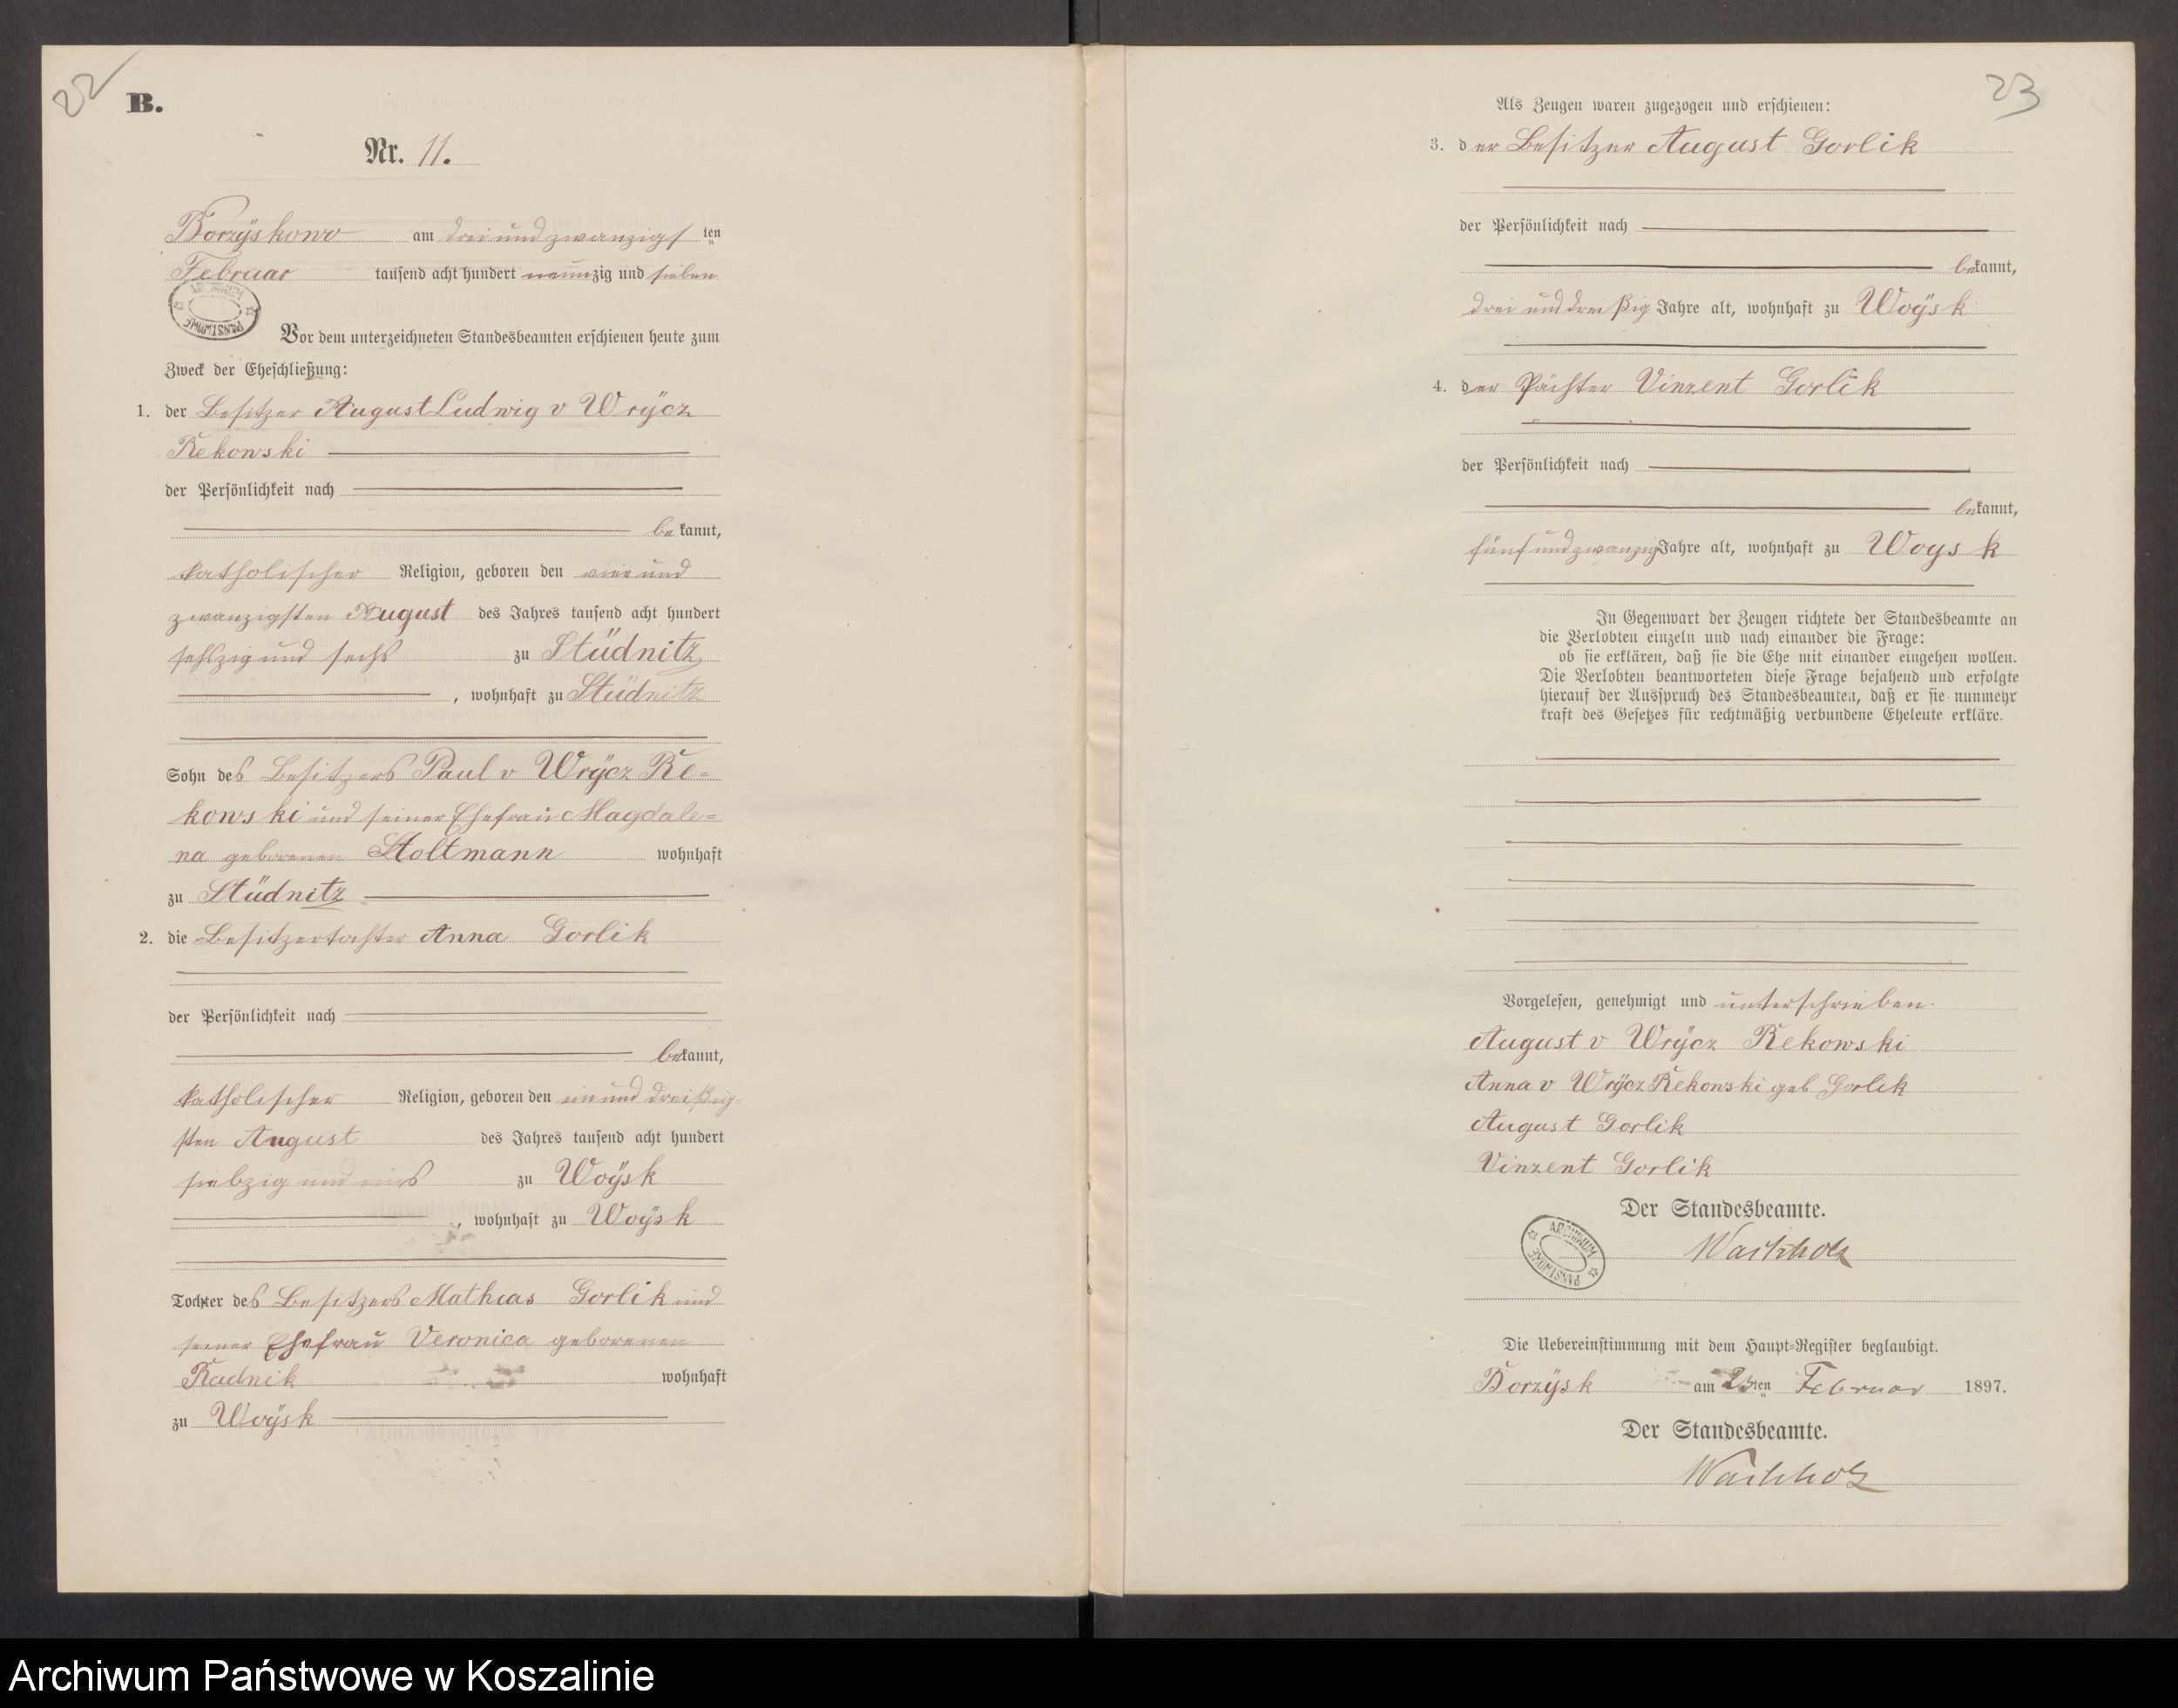 22
B.
Nr. 11.
Borzÿskowo am drei und zwanzigsten
Februar tausend acht hundert neunzig und sieben
ARCHIWUM PAŃSTWOWE
Vor dem unterzeichneten Standesbeamten erschienen heute zum
Zweck der Eheschließung:
1. der Besitzer August Ludwig v Wrÿcz
Rekowski
der Persönlichkeit nach
bekannt,
katholischer Religion, geboren den vier und
zwanzigsten August des Jahres tausend acht hundert
sechszig und sechs zu Stüdnitz
, wohnhaft zu Stüdnitz
Sohn des Besitzers Paul v Wrÿcz Re=
kowski und seiner Ehefrau Magdale=
na geborenen Stoltmann wohnhaft
zu Stüdnitz
2. die Besitzertochter Anna Gorlik
der Persönlichkeit nach
bekannt,
katholischer Religion, geboren den ein und dreißig=
sten August des Jahres tausend acht hundert
siebzig und eins zu Woÿsk
, wohnhaft zu Woÿsk
Tochter des Besitzers Mathias Gorlik und
seiner Ehefrau Veronica geborenen
Rudnik wohnhaft
zu Woÿsk
23
Als Zeugen waren zugezogen und erschienen:
3. der Besitzer August Gorlik
der Persönlichkeit nach
bekannt,
drei und dreißig Jahre alt, wohnhaft zu Woÿsk
4. der Pächter Vinzent Gorlik
der Persönlichkeit nach
bekannt,
fünf und zwanzig Jahre alt, wohnhaft zu Woysk
In Gegenwart der Zeugen richtete der Standesbeamte an
die Verlobten einzeln und nach einander die Frage:
ob sie erklären, daß sie die Ehe mit einander eingehen wollen.
Die Verlobten beantworteten diese Frage bejahend und erfolgte
hierauf der Ausspruch des Standesbeamten, daß er sie nunmehr
kraft des Gesetzes für rechtmäßig verbundene Eheleute erkläre.
Vorgelesen, genehmigt und unterschrieben.
August v Wrÿcz Rekowski
Anna v Wrÿcz Rekowski geb Gorlik
August Gorlik
Vinzent Gorlik
Der Standesbeamte.
ARCHIWUM PAŃSTWOWE
Die Uebereinstimmung mit dem Haupt-Register beglaubigt.
Borzÿsk am ten Februar 1897.
Der Standesbeamte.
Archiwum Państwowe w Koszalinie